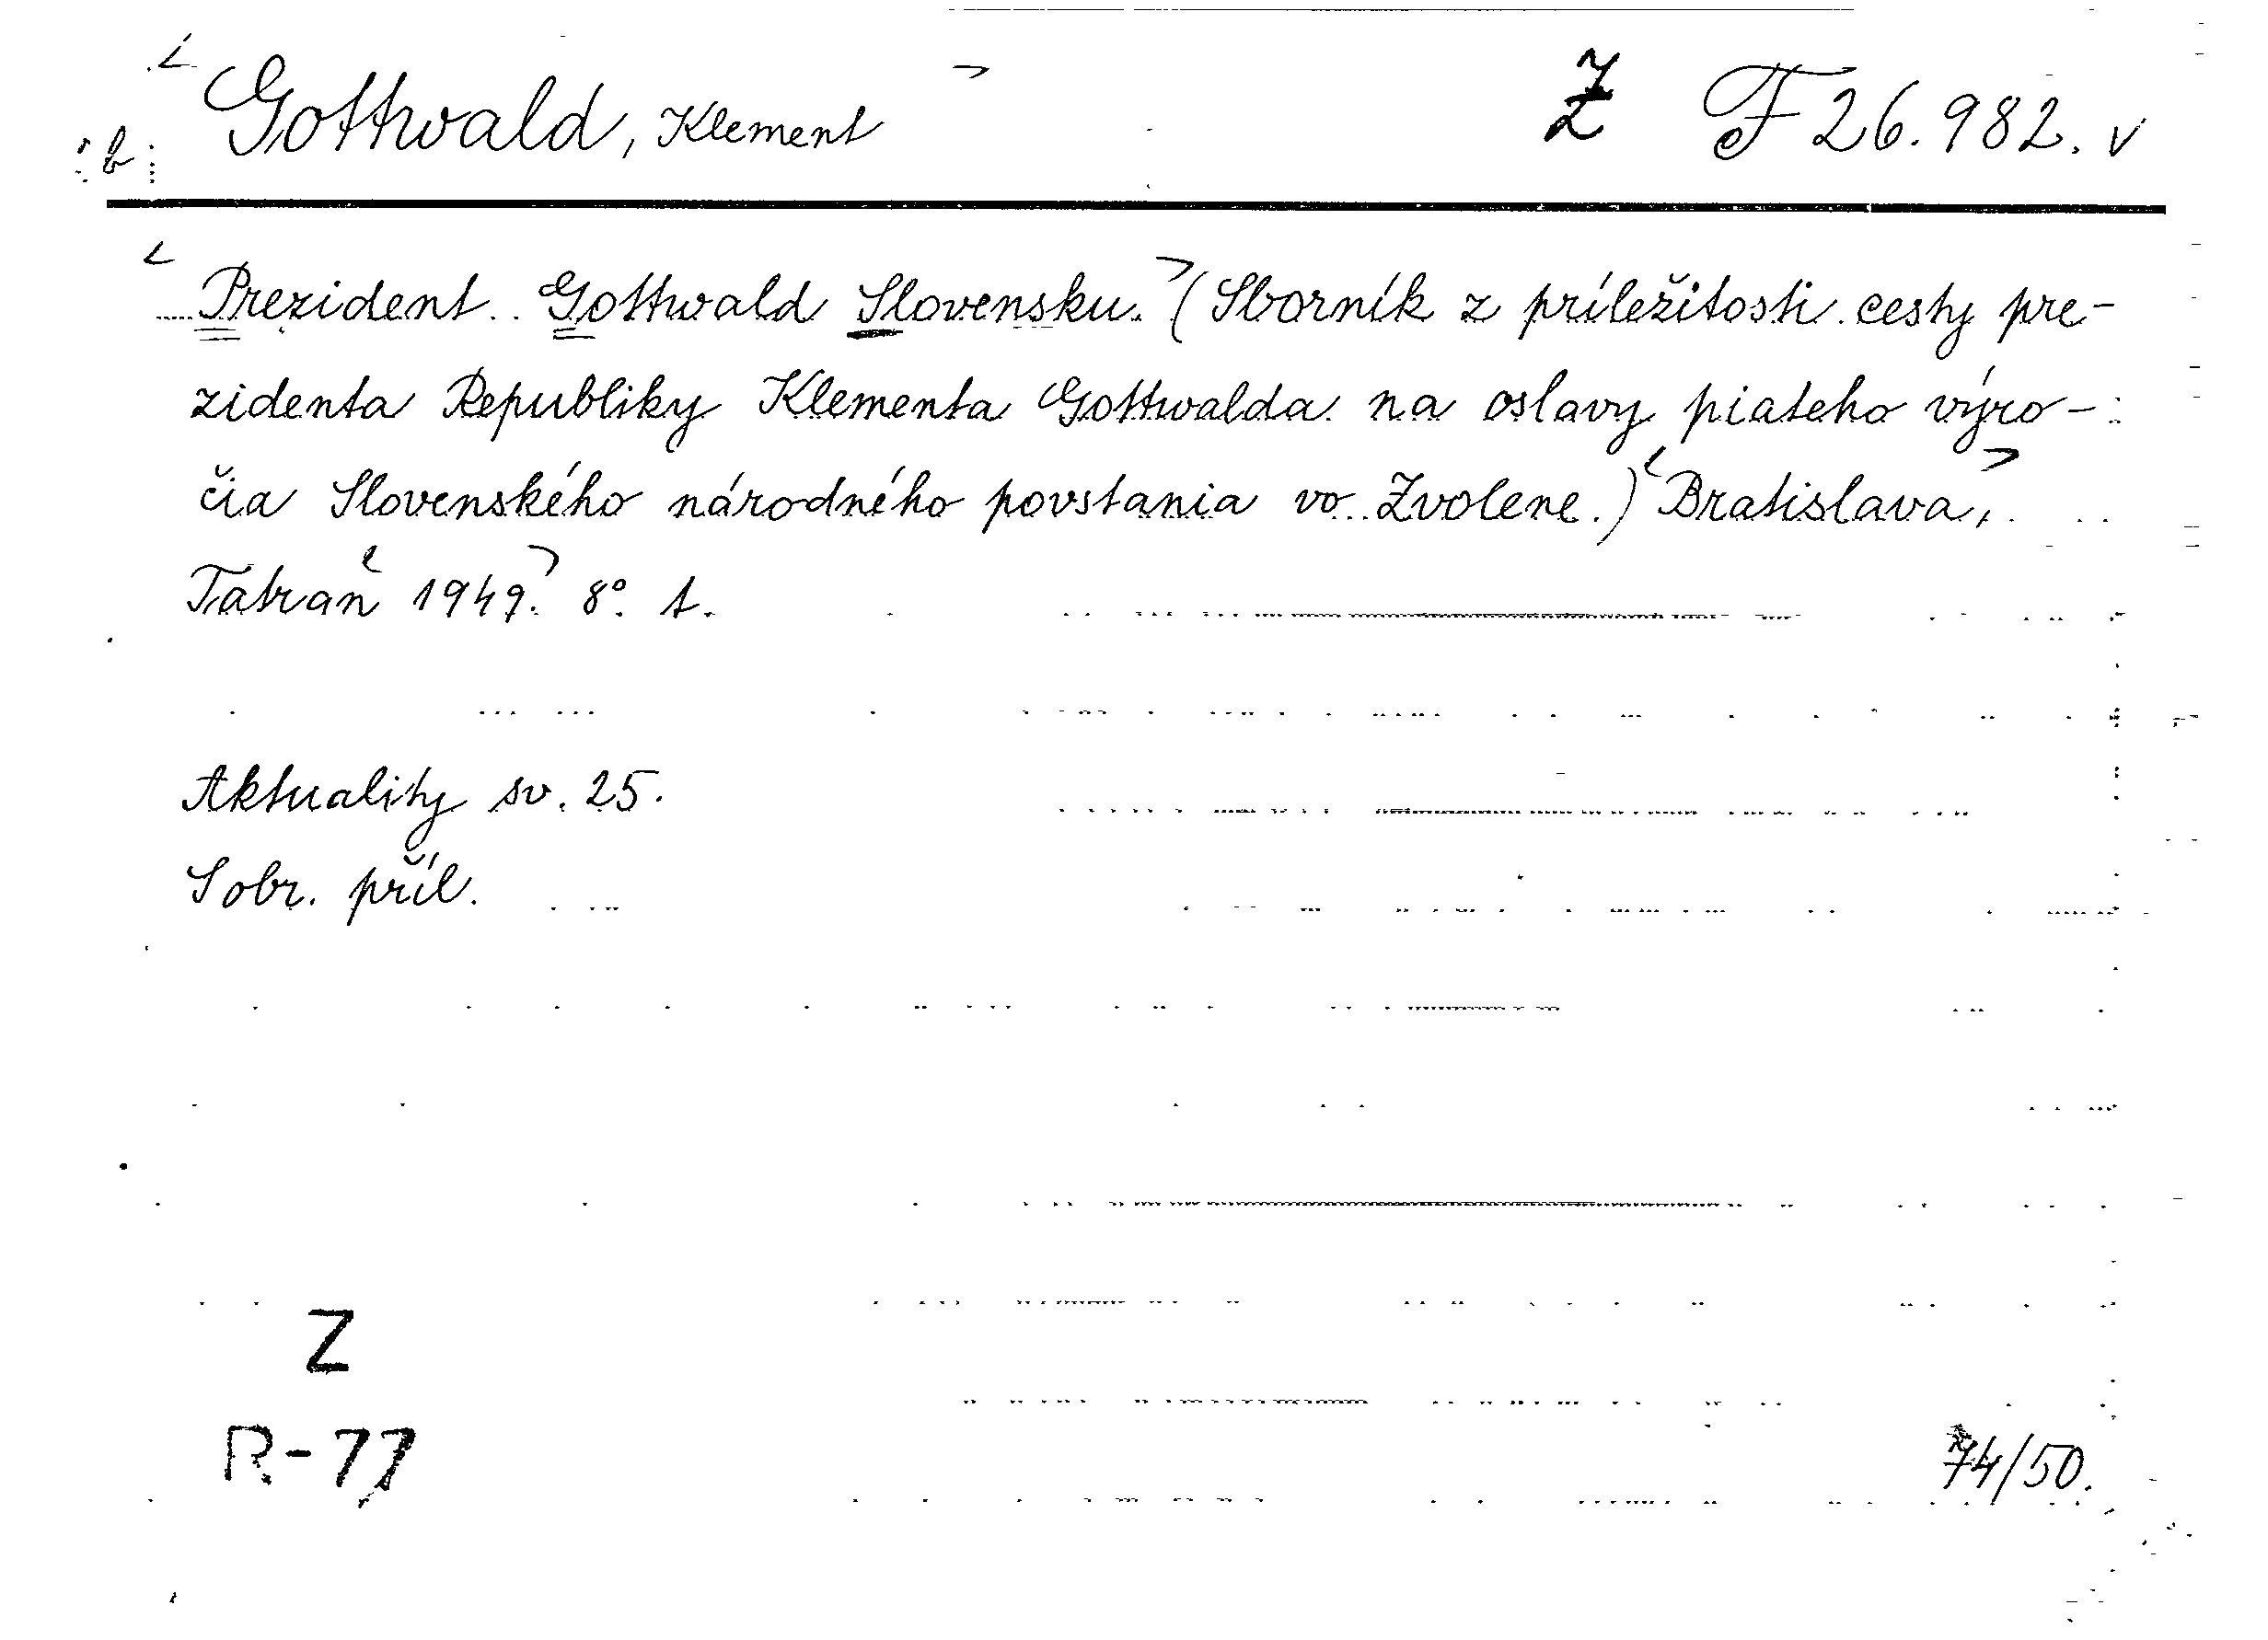 Gottwald, Klement Z F 26.982. v
b
Prezident Gottwald Slovensku. (Sborník z príležitosti cesty pre-
zidenta Republiky Klementa Gottwalda na oslavy piateho výro-
čia Slovenského národného povstania vo Zvolene.) Bratislava,
Tatran 1949. 8°. 1.
Aktuality sv. 25.
S obr. příl.
Z
R-77
74/50.